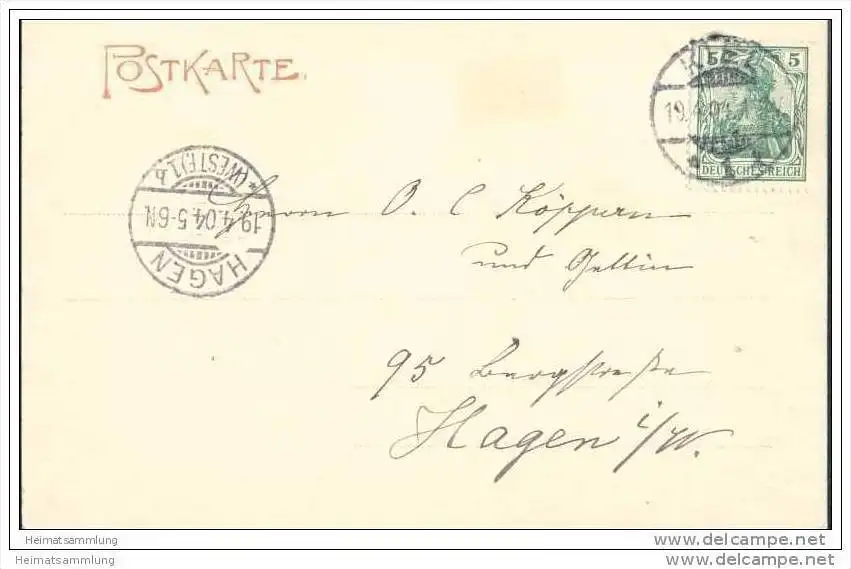 POSTKARTE.
5 5
KIEL
19.4.04
1
DEUTSCHES REICH
*(WESTF.) 1 b
19.4.04.5-6N.
HAGEN
Herrn O. C. Köppern
und Gattin
95 Bergstraße
Hagen i/W.
Heimatsammlung
Heimatsammlung
www.delcampe.net